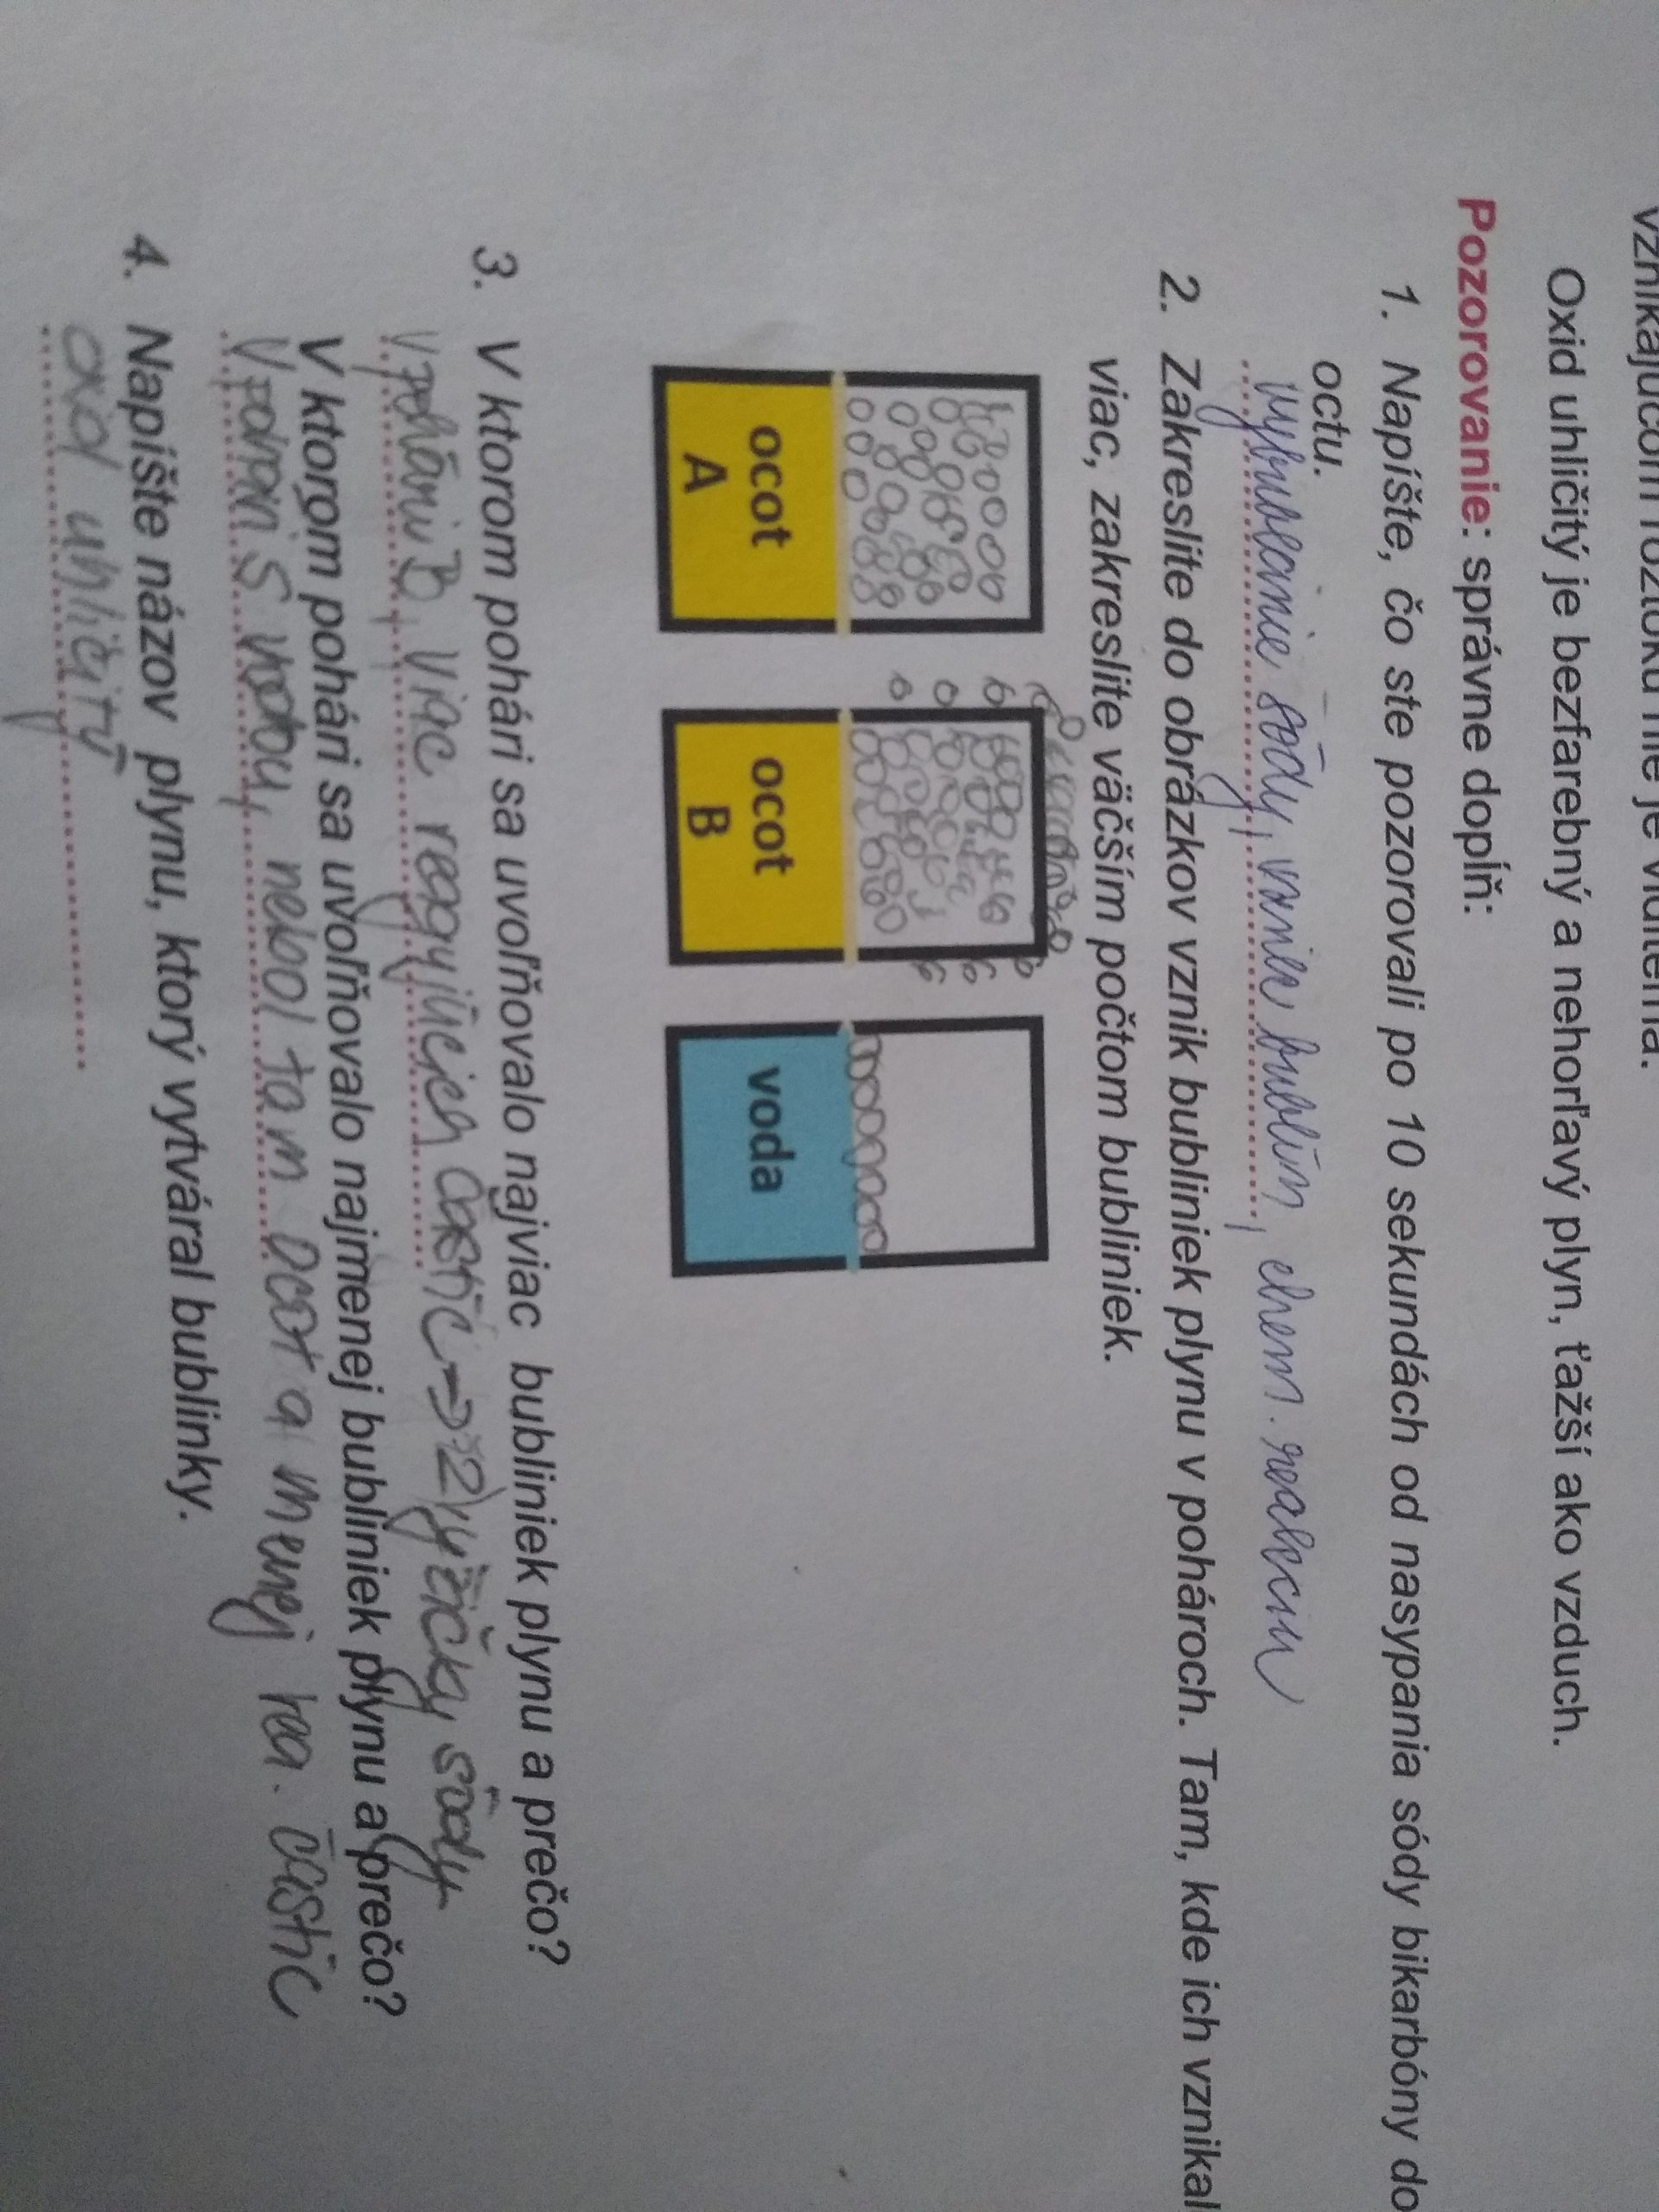 vznikajúcom roztoku nie je viditeľná.
Oxid uhličitý je bezfarebný a nehorľavý plyn, ťažší ako vzduch.
Pozorovanie: správne dopĺň:
1. Napíšte, čo ste pozorovali po 10 sekundách od nasypania sódy bikarbóny do
octu.
sódy, vznik bublín, chem. reakciu
2. Zakreslite do obrázkov vznik bubliniek plynu v pohároch. Tam, kde ich vznikal
viac, zakreslite väčším počtom bubliniek.
ocot
A
ocot
B
voda
3. V ktorom pohári sa uvoľňovalo najviac bubliniek plynu a prečo?
V pohári B, viac reagujúcich častíc → 2 lyžičky sódy
V ktorom pohári sa uvoľňovalo najmenej bubliniek plynu a prečo?
V pohári s vodou, nebol tam ocot a menej rea. častíc
4. Napíšte názov plynu, ktorý vytváral bublinky.
oxid uhličitý